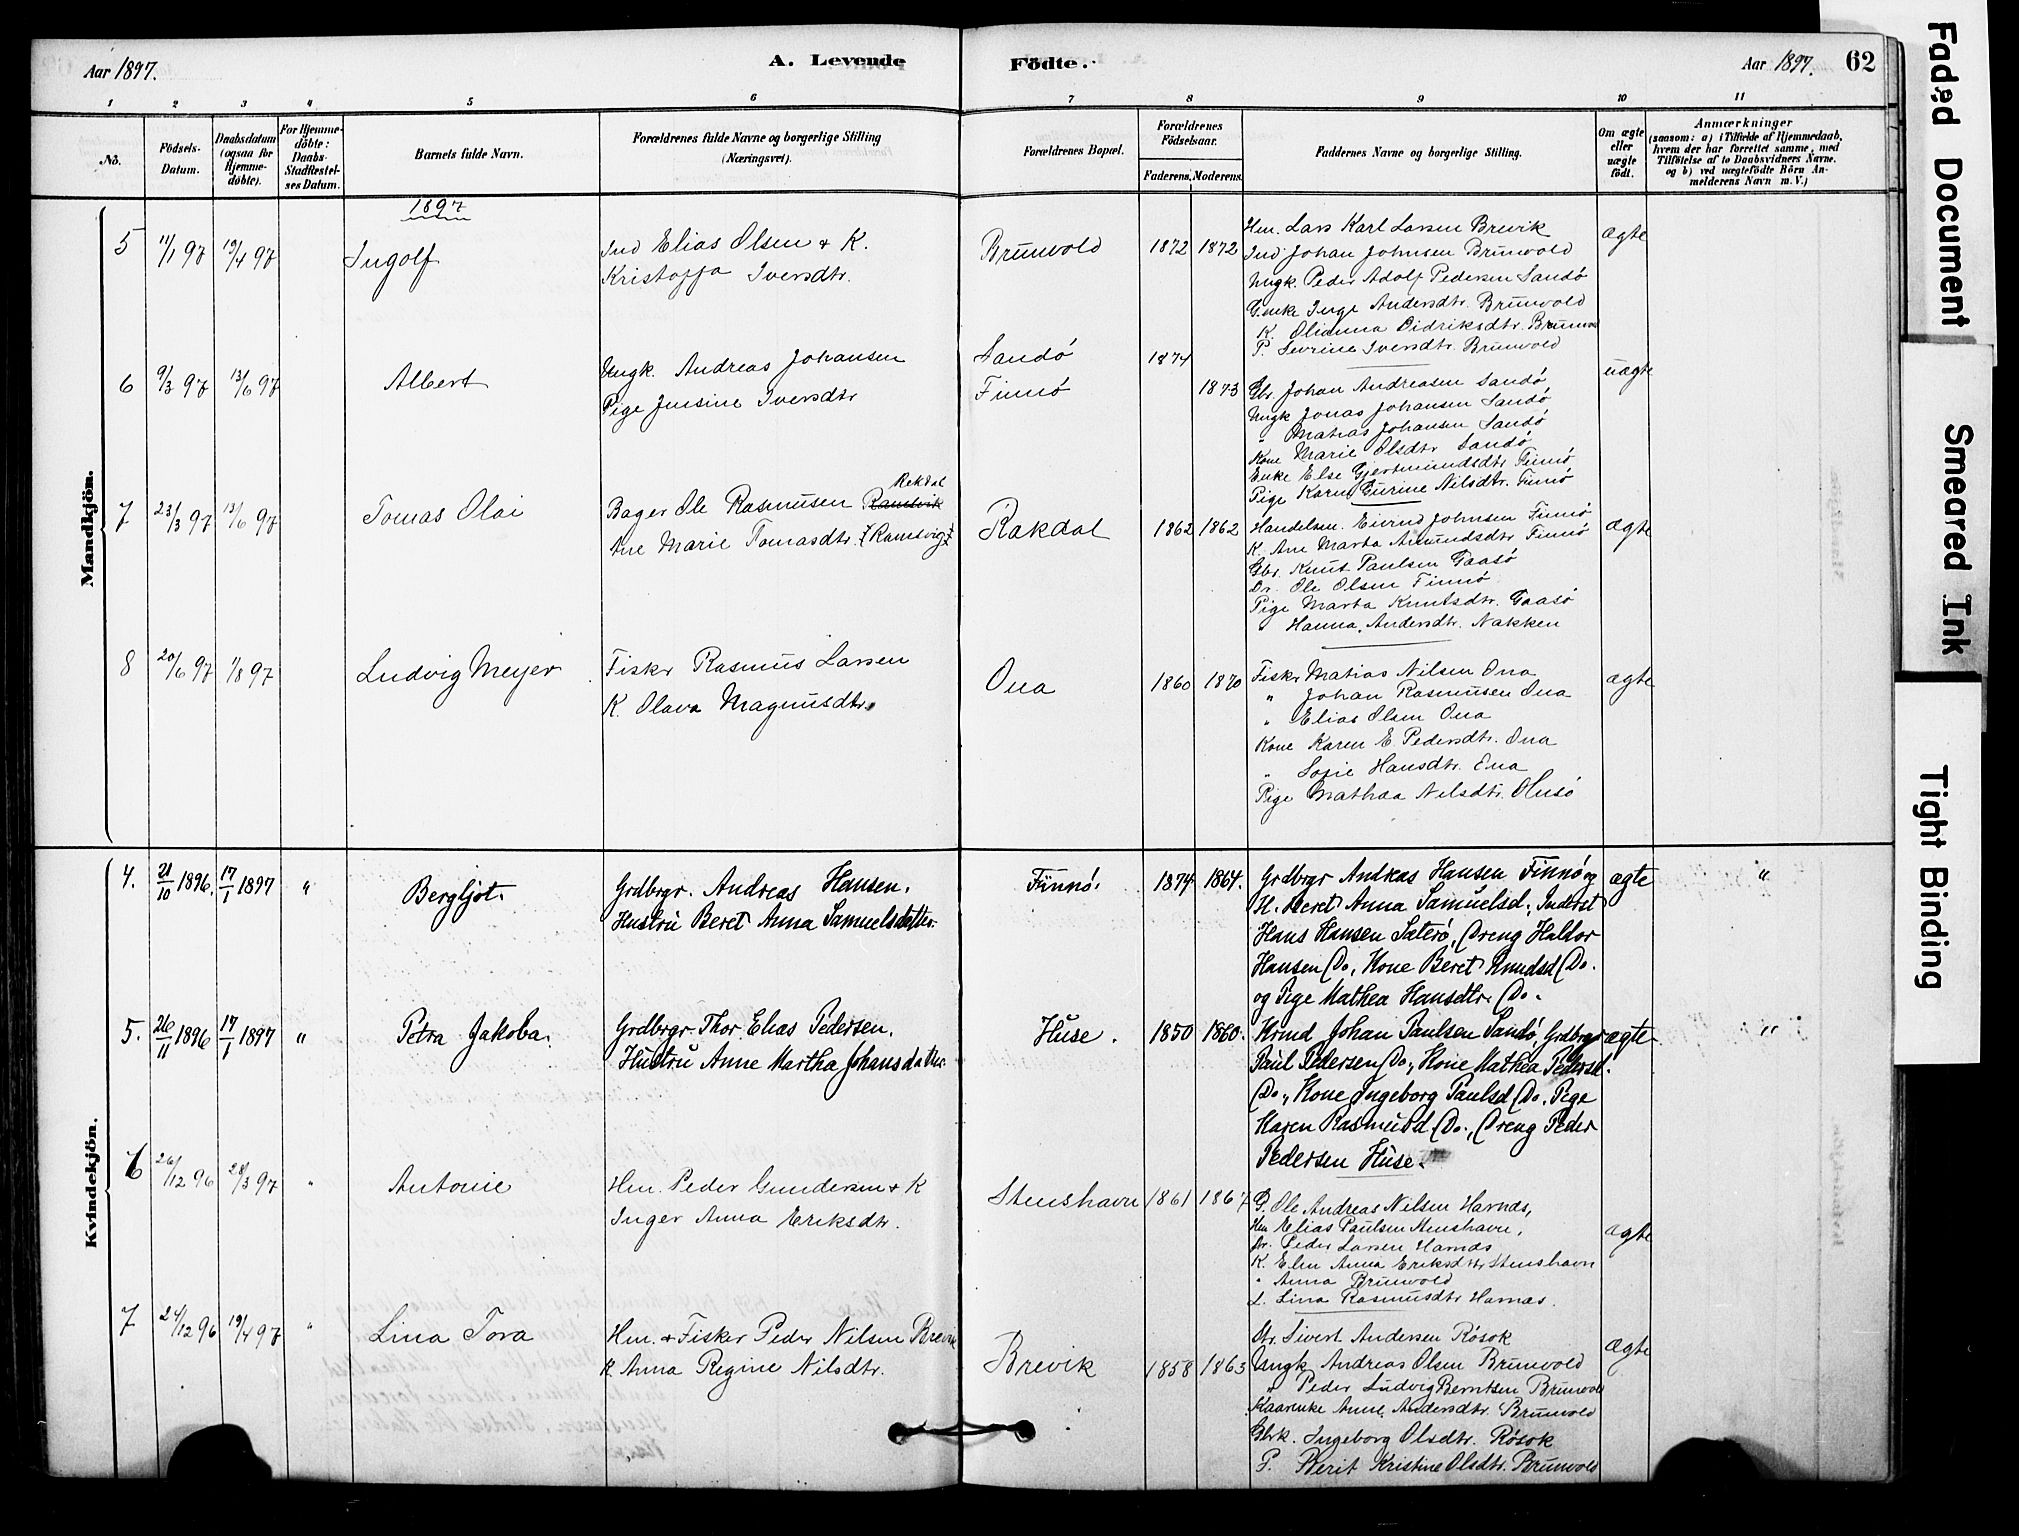 Aar 1897.
A. Levende
Födte.
Aar 1897.
62
1 2 3 4 5 6 7 8 9 10 11
No.
Födsels-
Datum.
Daabsdatum
(ogsaa for
Hjemme-
döbte).
For Hjemme-
döbte:
Daabs-
Stadfæstel-
ses Datum.
Barnets fulde Navn.
Forældrenes fulde Navne og borgerlige Stilling
(Næringsvei).
Forældrenes Bopæl.
Forældrenes
Födselsaar.
Faderens. Moderens.
Faddernes Navne og borgerlige Stilling.
Om ægte
eller
uægte
födt.
Anmærkninger
(saasom: a) i Tilfælde af Hjemmedaab,
hvem der har forrettet samme, med
Tilföielse af to Daabsvidners Navne.
og b) ved uægtefödte Börn An-
melderens Navn m. V.)
Mandkjön.
1897
5 11/1 97 19/4 97 Ingolf
Ind Elias Olsen & K.
Kristoffa Iversdtr.
Brunvold 1872 1872
Hm. Lars Karl Larsen Brevik
Ind Johan Johnsen Brunvold
Ungk. Peder Adolf Pedersen Sandö
G.enke Inge Andersdtr. Brunvold
K. Olianna Didriksdtr. Brunvo
P. Sevrine Iversdtr. Brunvold
ægte
6 9/3 97 13/6 97 Albert
Ungk. Andreas Johansen
Pige Jensine Iversdtr
Sandö 1874
Finnö 1873
Gbr. Johan Andreasen Sandö
Ungk Jonas Johansen Sandö
" Matias Johansen Sandö
Kone Marie Olsdtr Sandö
Enke Else Gjertmundsdtr Finnö
Pige Karen Gurine Nilsdtr. Finnö
uægte
7 23/3 97 13/6 97 Tomas Olai
Rekdal
Bager Ole Rasmusen Ramsvik
Ane Marie Tomasdtr. (Ramsvig)
Rakdal 1862 1862
Handelsm. Eivind Johnsen Finnö
K. Ane Marta Amundsdtr Finnö
Gbr. Knut Paulsen Gaasö
Dr. Ole Olsen Finnö
Pige Marta Knutsdtr. Gaasö
" Hanna Andersdtr. Nakken
ægte
8 20/6 97 1/8 97 Ludvig Meyer
Fisker Rasmus Larsen
K. Olava Magnusdtr.
Ona 1860 1870
Fisker Matias Nilsen Ona
" Johan Rasmusen Ona
" Elias Olsen Ona
Kone Karen E. Pedersdtr. Ona
" Sofie Hansdtr. Ona
Pige Mathea Nilsdtr. Husö
ægte
Kvindekjön.
4. 21/10 1896. 17/1 1897 " Bergljot.
Grdbrgr. Andreas Hansen.
Hustru Beret Anna Samuelsdatter.
Finnö. 1874 1864.
Grdbrgr Andreas Hansen Finnö og
H. Beret Anna Samuelsd., Inderst
Hans Hansen Sæterö, Dreng Haldor
Hansen Do, Kone Beret Knudsd Do.
og Pige Mathea Hansdtr. Do.
ægte "
5. 26/11 1896 17/1 1897 " Petra Jakoba.
Grdbrgr Thor Elias Pedersen.
Hustru Anne Martha Johansdatter.
Huse. 1850 1860.
Hmd Johan Paulsen Sandö, Grdbrgr
Paul Pedersen Do., Kone Mathea Pedersd.
Do., Kone Ingeborg Paulsd Do. Pige
Karen Rasmusd Do., Dreng Peder
Pedersen Huse.
ægte "
6 26/12 96 28/3 97 " Antonie
Hm. Peder Gundersen & K
Inger Anna Eriksdtr.
Stenshavn 1861 1867
G. Ole Andreas Nilsen Harnæs,
Hm Elias Paulsen Stenshavn,
Dr. Peder Larsen Harnæs
K. Elen Anna Eriksdtr Stenshavn
" Anna Brunvold
P. Lina Rasmusdtr Harnæs.
ægte
7 24/12 96 19/4 97 " Lina Tora
Hm. & Fisker Peder Nilsen Brevik
K. Anna Regine Nilsdtr.
Brevik 1858 1863
Str. Sivert Andersen Rösok
Ungk Andreas Olsen Brunvold
" Peder Ludvig Berntsen Brunvold
Kaarenke Anne Andersdtr. Brunvold
Gbrk. Ingeborg Olsdtr. Rösok
P. Berit Kristine Olsdtr. Brunvold
ægte
Faded Document
Smeared Ink
Tight Binding